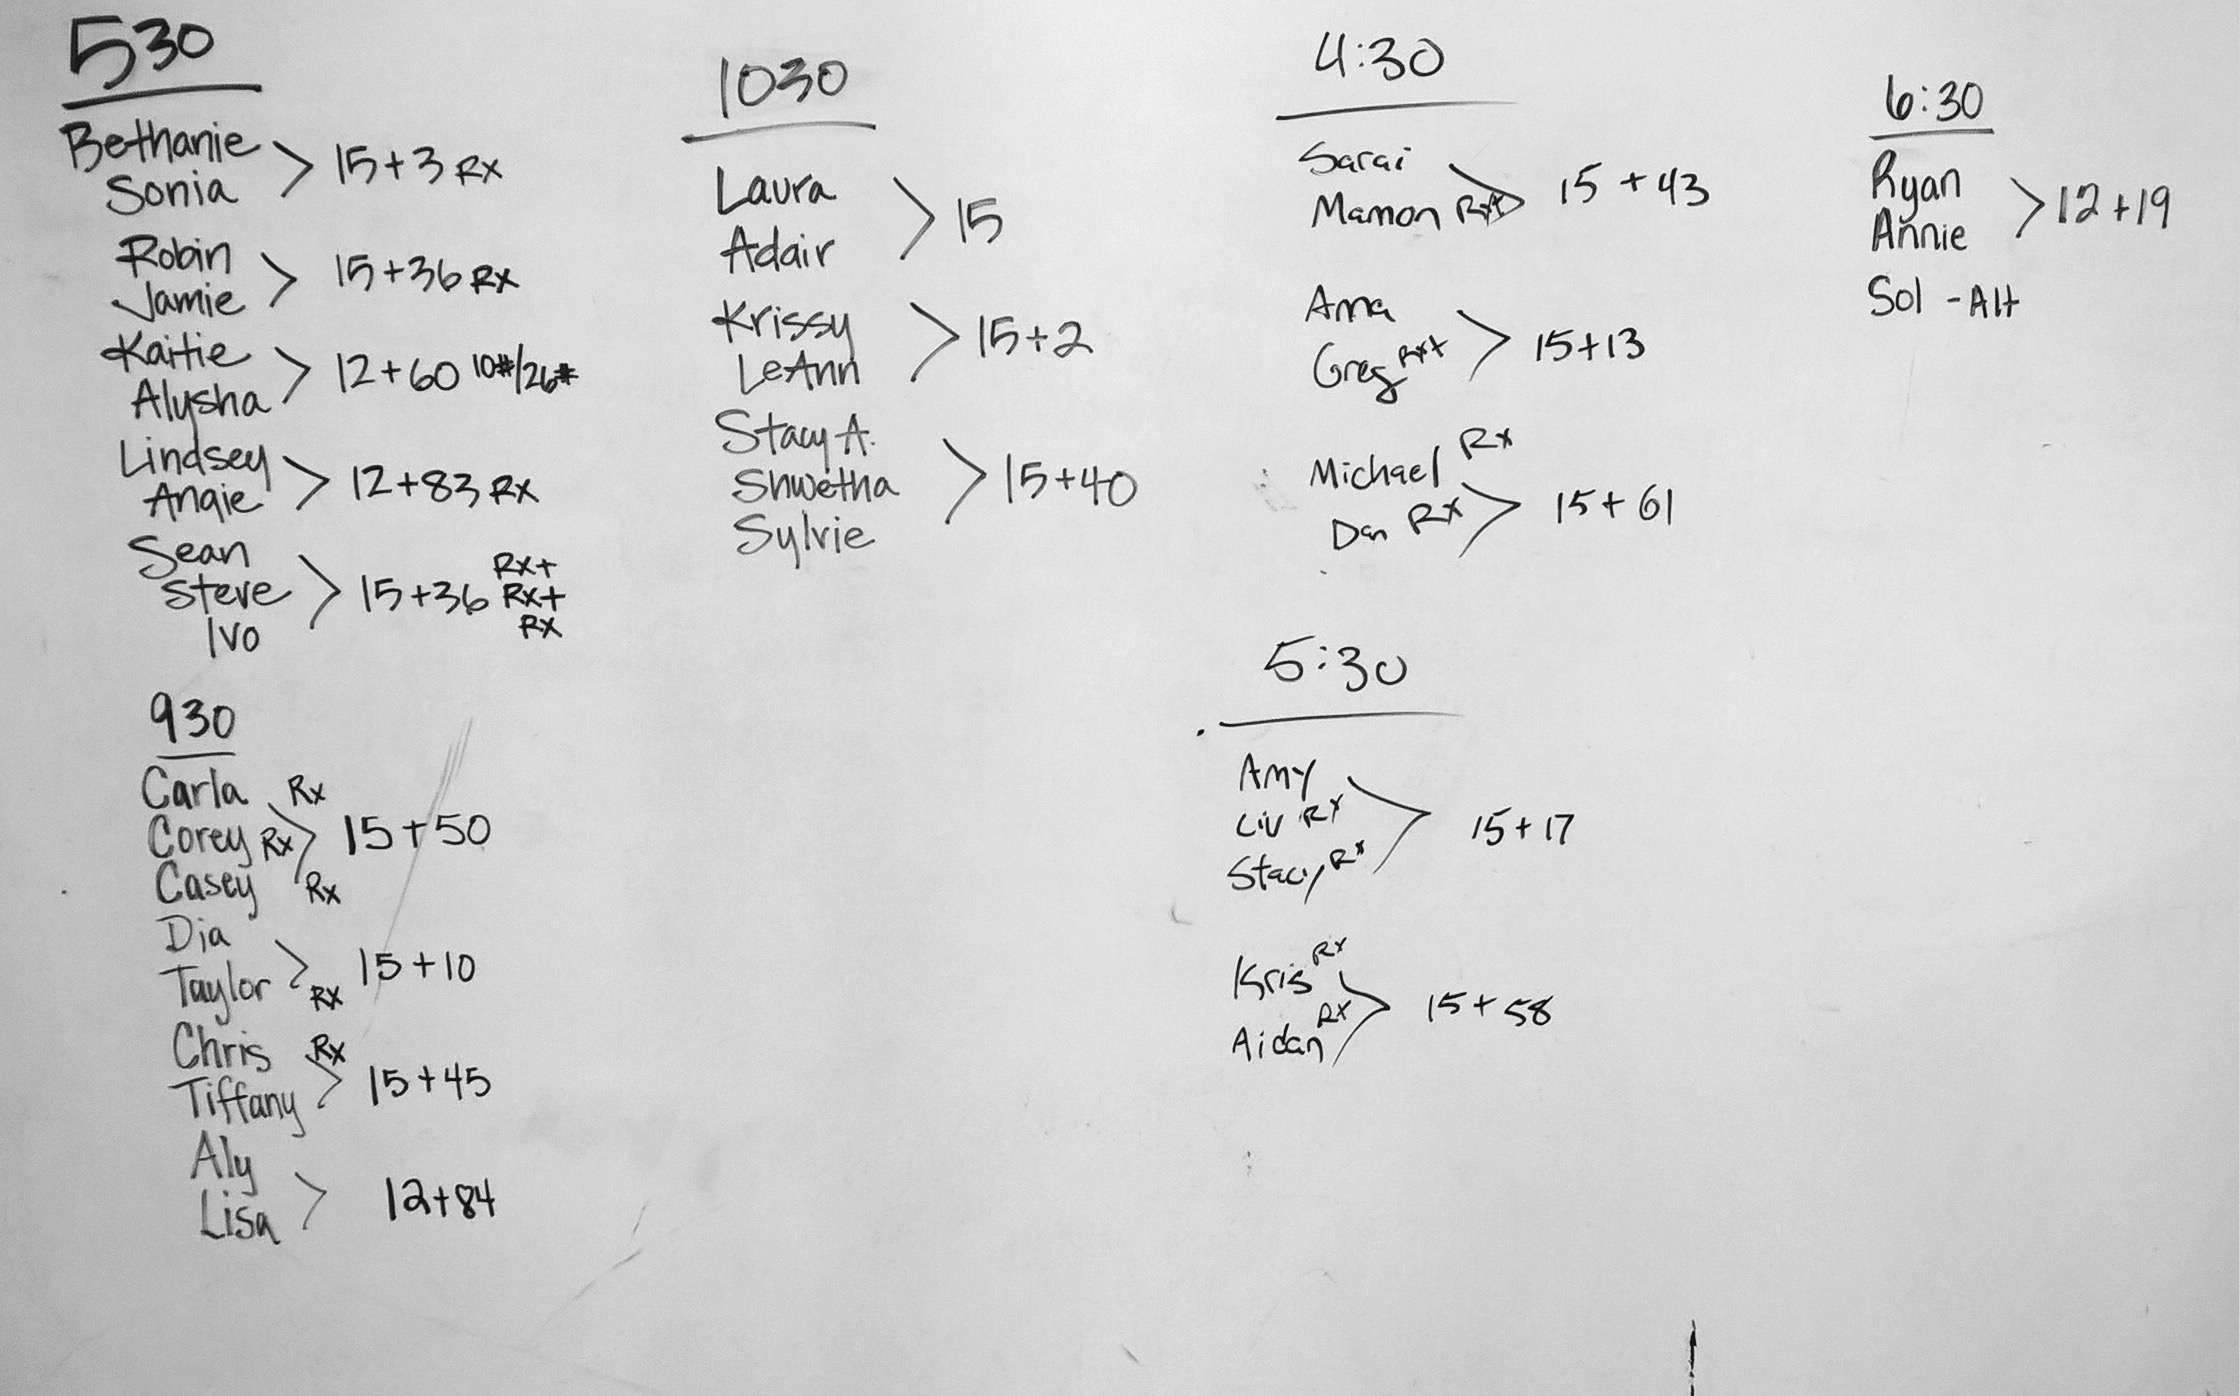 530
Bethanie
Sonia
> 15+3 Rx
Robin
Jamie
> 15+36 Rx
Kaitie
Alysha
> 12+60 10#/26#
Lindsey
Angie
> 12+83 Rx
Sean
Steve
Ivo
> 15+36 Rx+
Rx+
Rx
930
Carla Rx
Corey Rx
Casey Rx
> 15+50
Dia
Taylor Rx
> 15+10
Chris Rx
Tiffany
> 15+45
Aly
Lisa
> 12+84
1030
Laura
Adair
> 15
Krissy
LeAnn
> 15+2
Stacy A.
Shwetha
Sylvie
> 15+40
4:30
Sarai
Mamon Rx+
> 15+43
Ama
Greg Rx+
> 15+13
Michael Rx
Dan Rx
> 15+61
5:30
Amy
Liv Rx
Stacy Rx
> 15+17
Kris Rx
Aidan Rx
> 15+58
6:30
Ryan
Annie
> 12+19
Sol -Alt